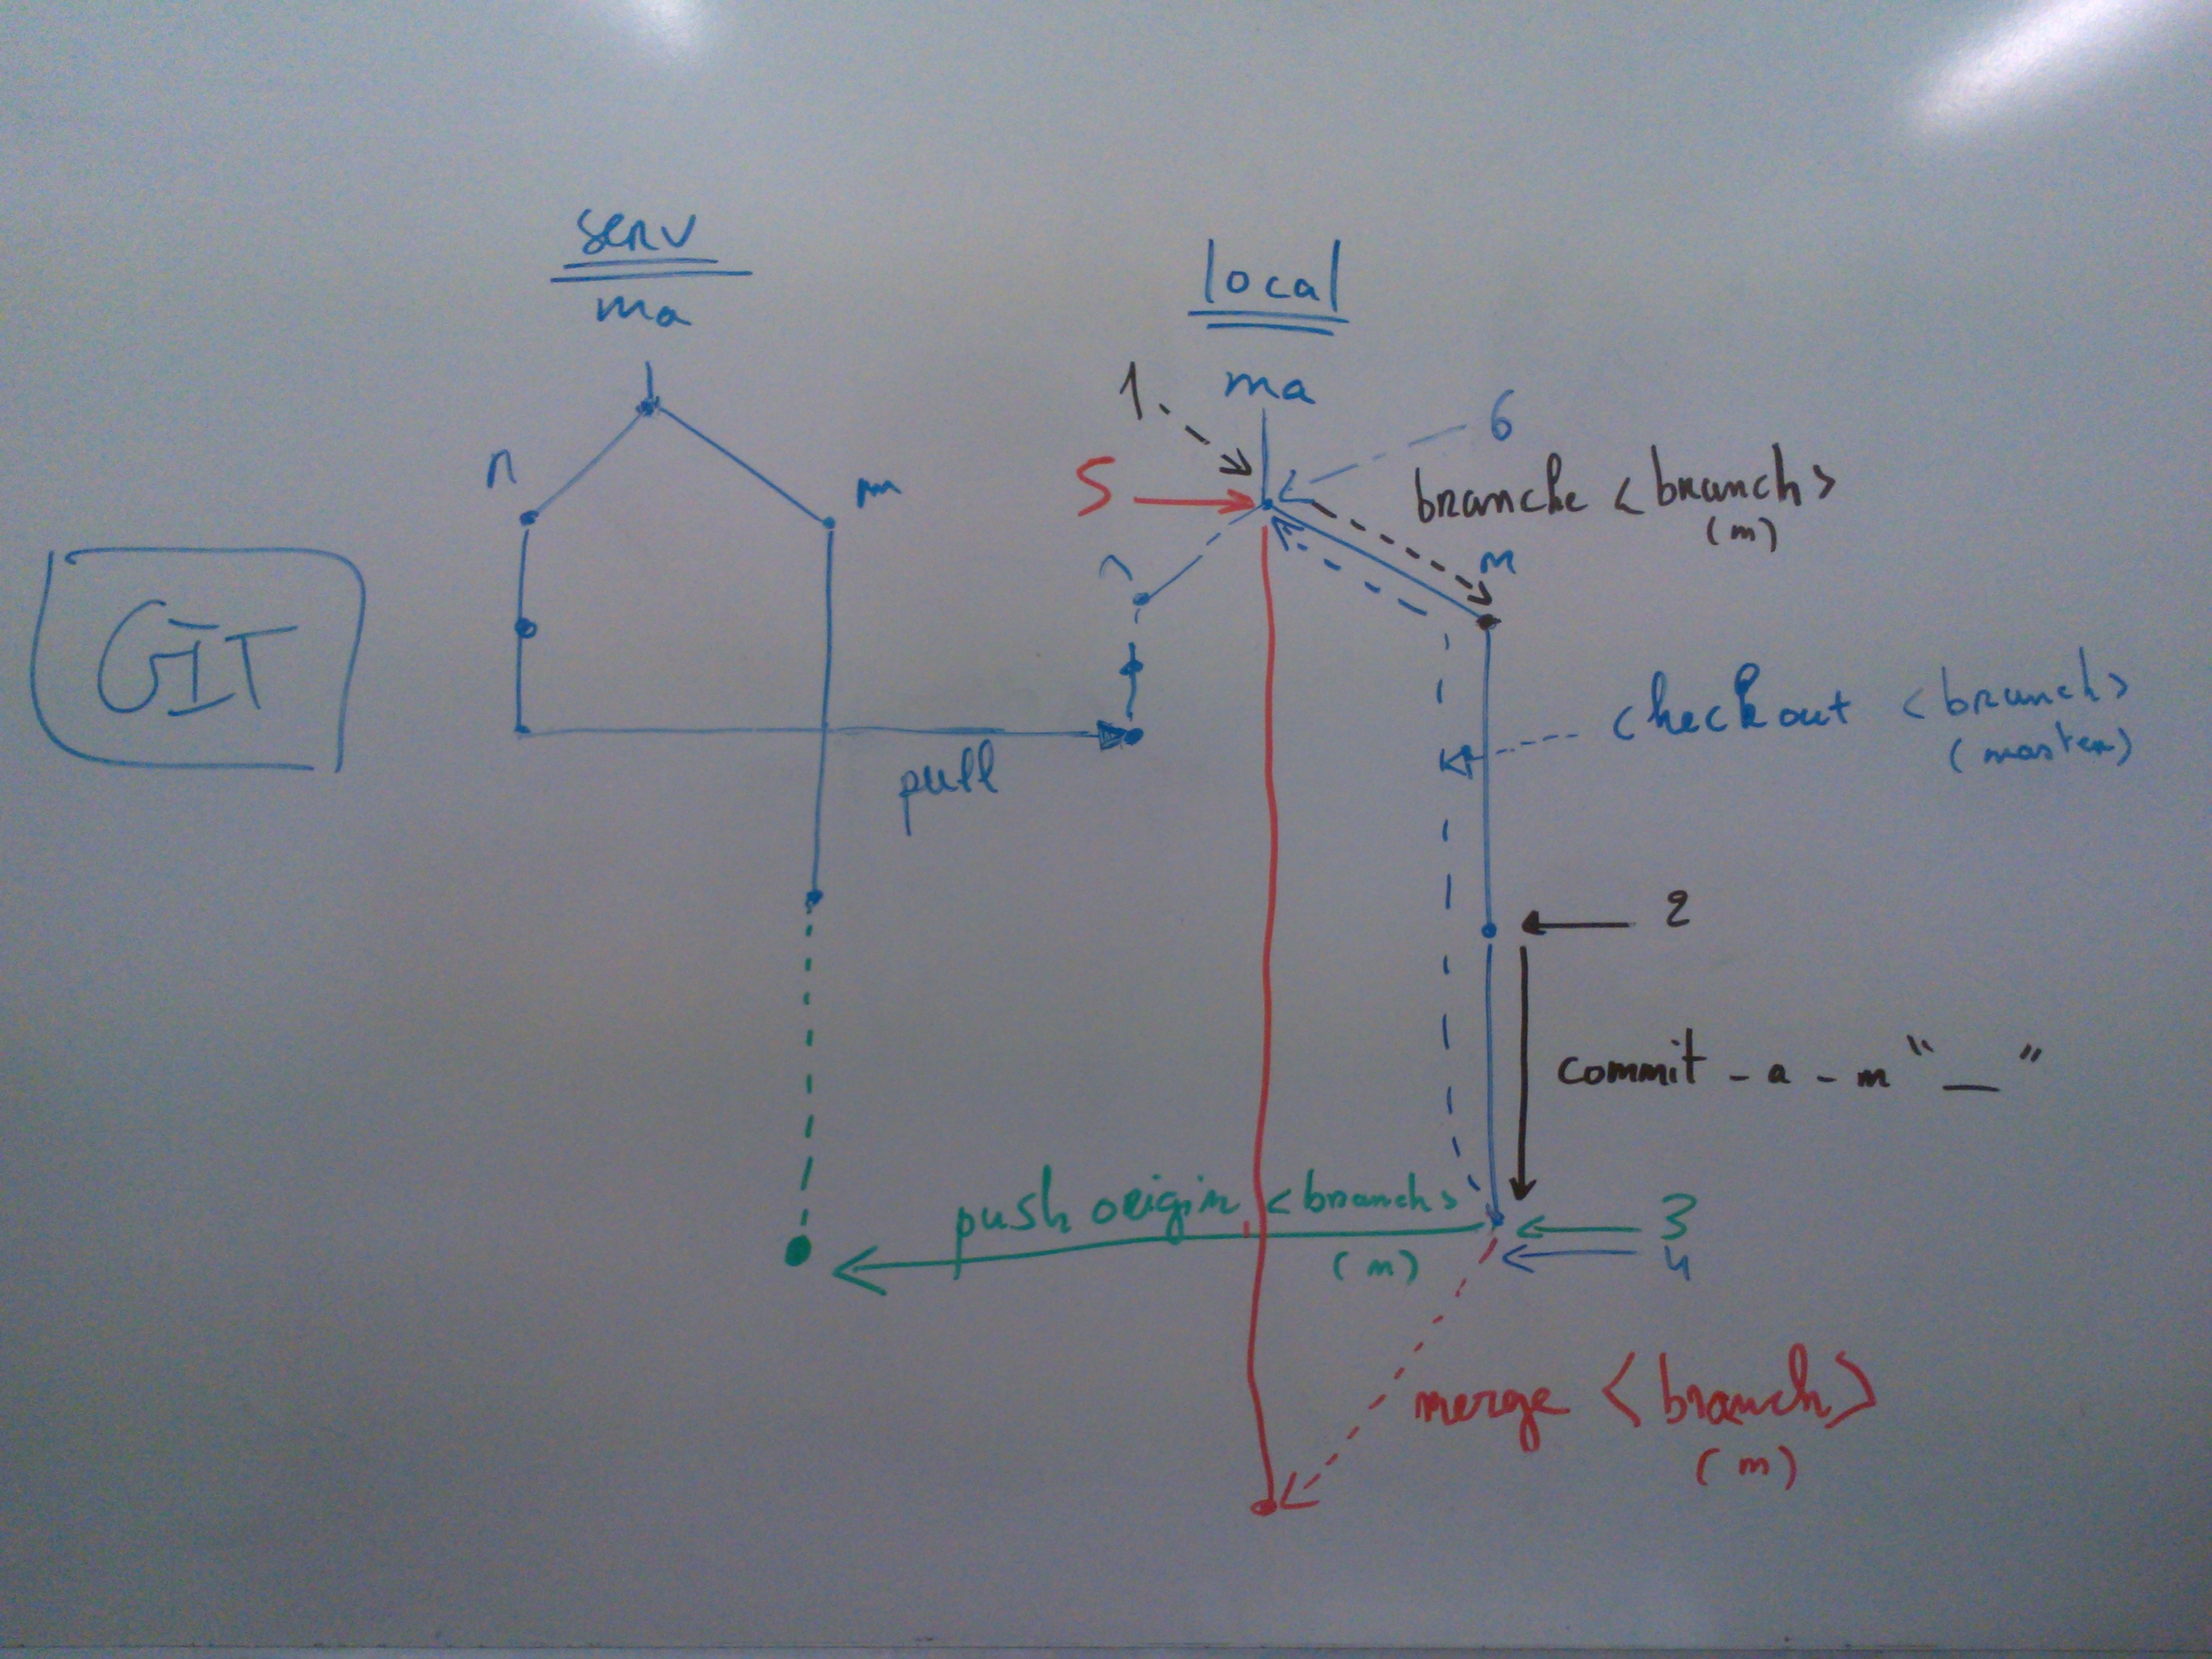 serv
ma
n
m
GIT
pull
local
ma
1
6
5
branche <branch>
(m)
m
checkout <branch>
(master)
2
commit -a -m "__"
push origin <branch>
(m)
3
4
merge <branch>
(m)